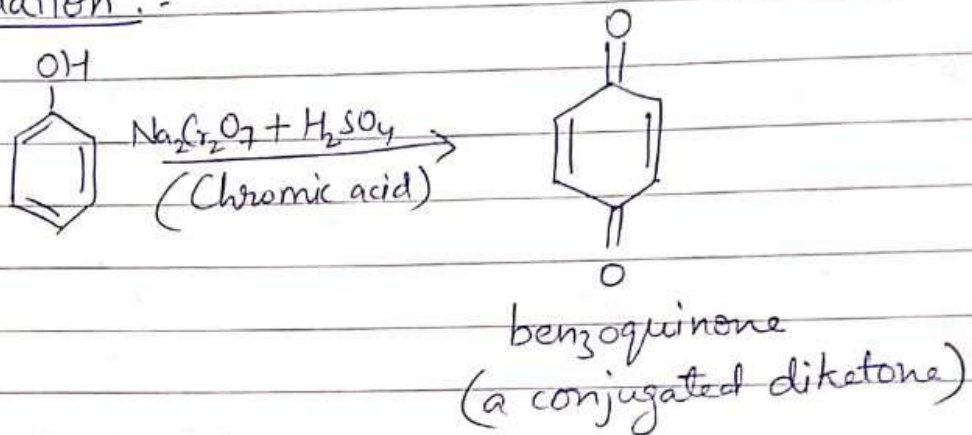 OH
Na₂Cr₂O₇ + H₂SO₄
(Chromic acid)
O
O
benzoquinone
(a conjugated diketone)